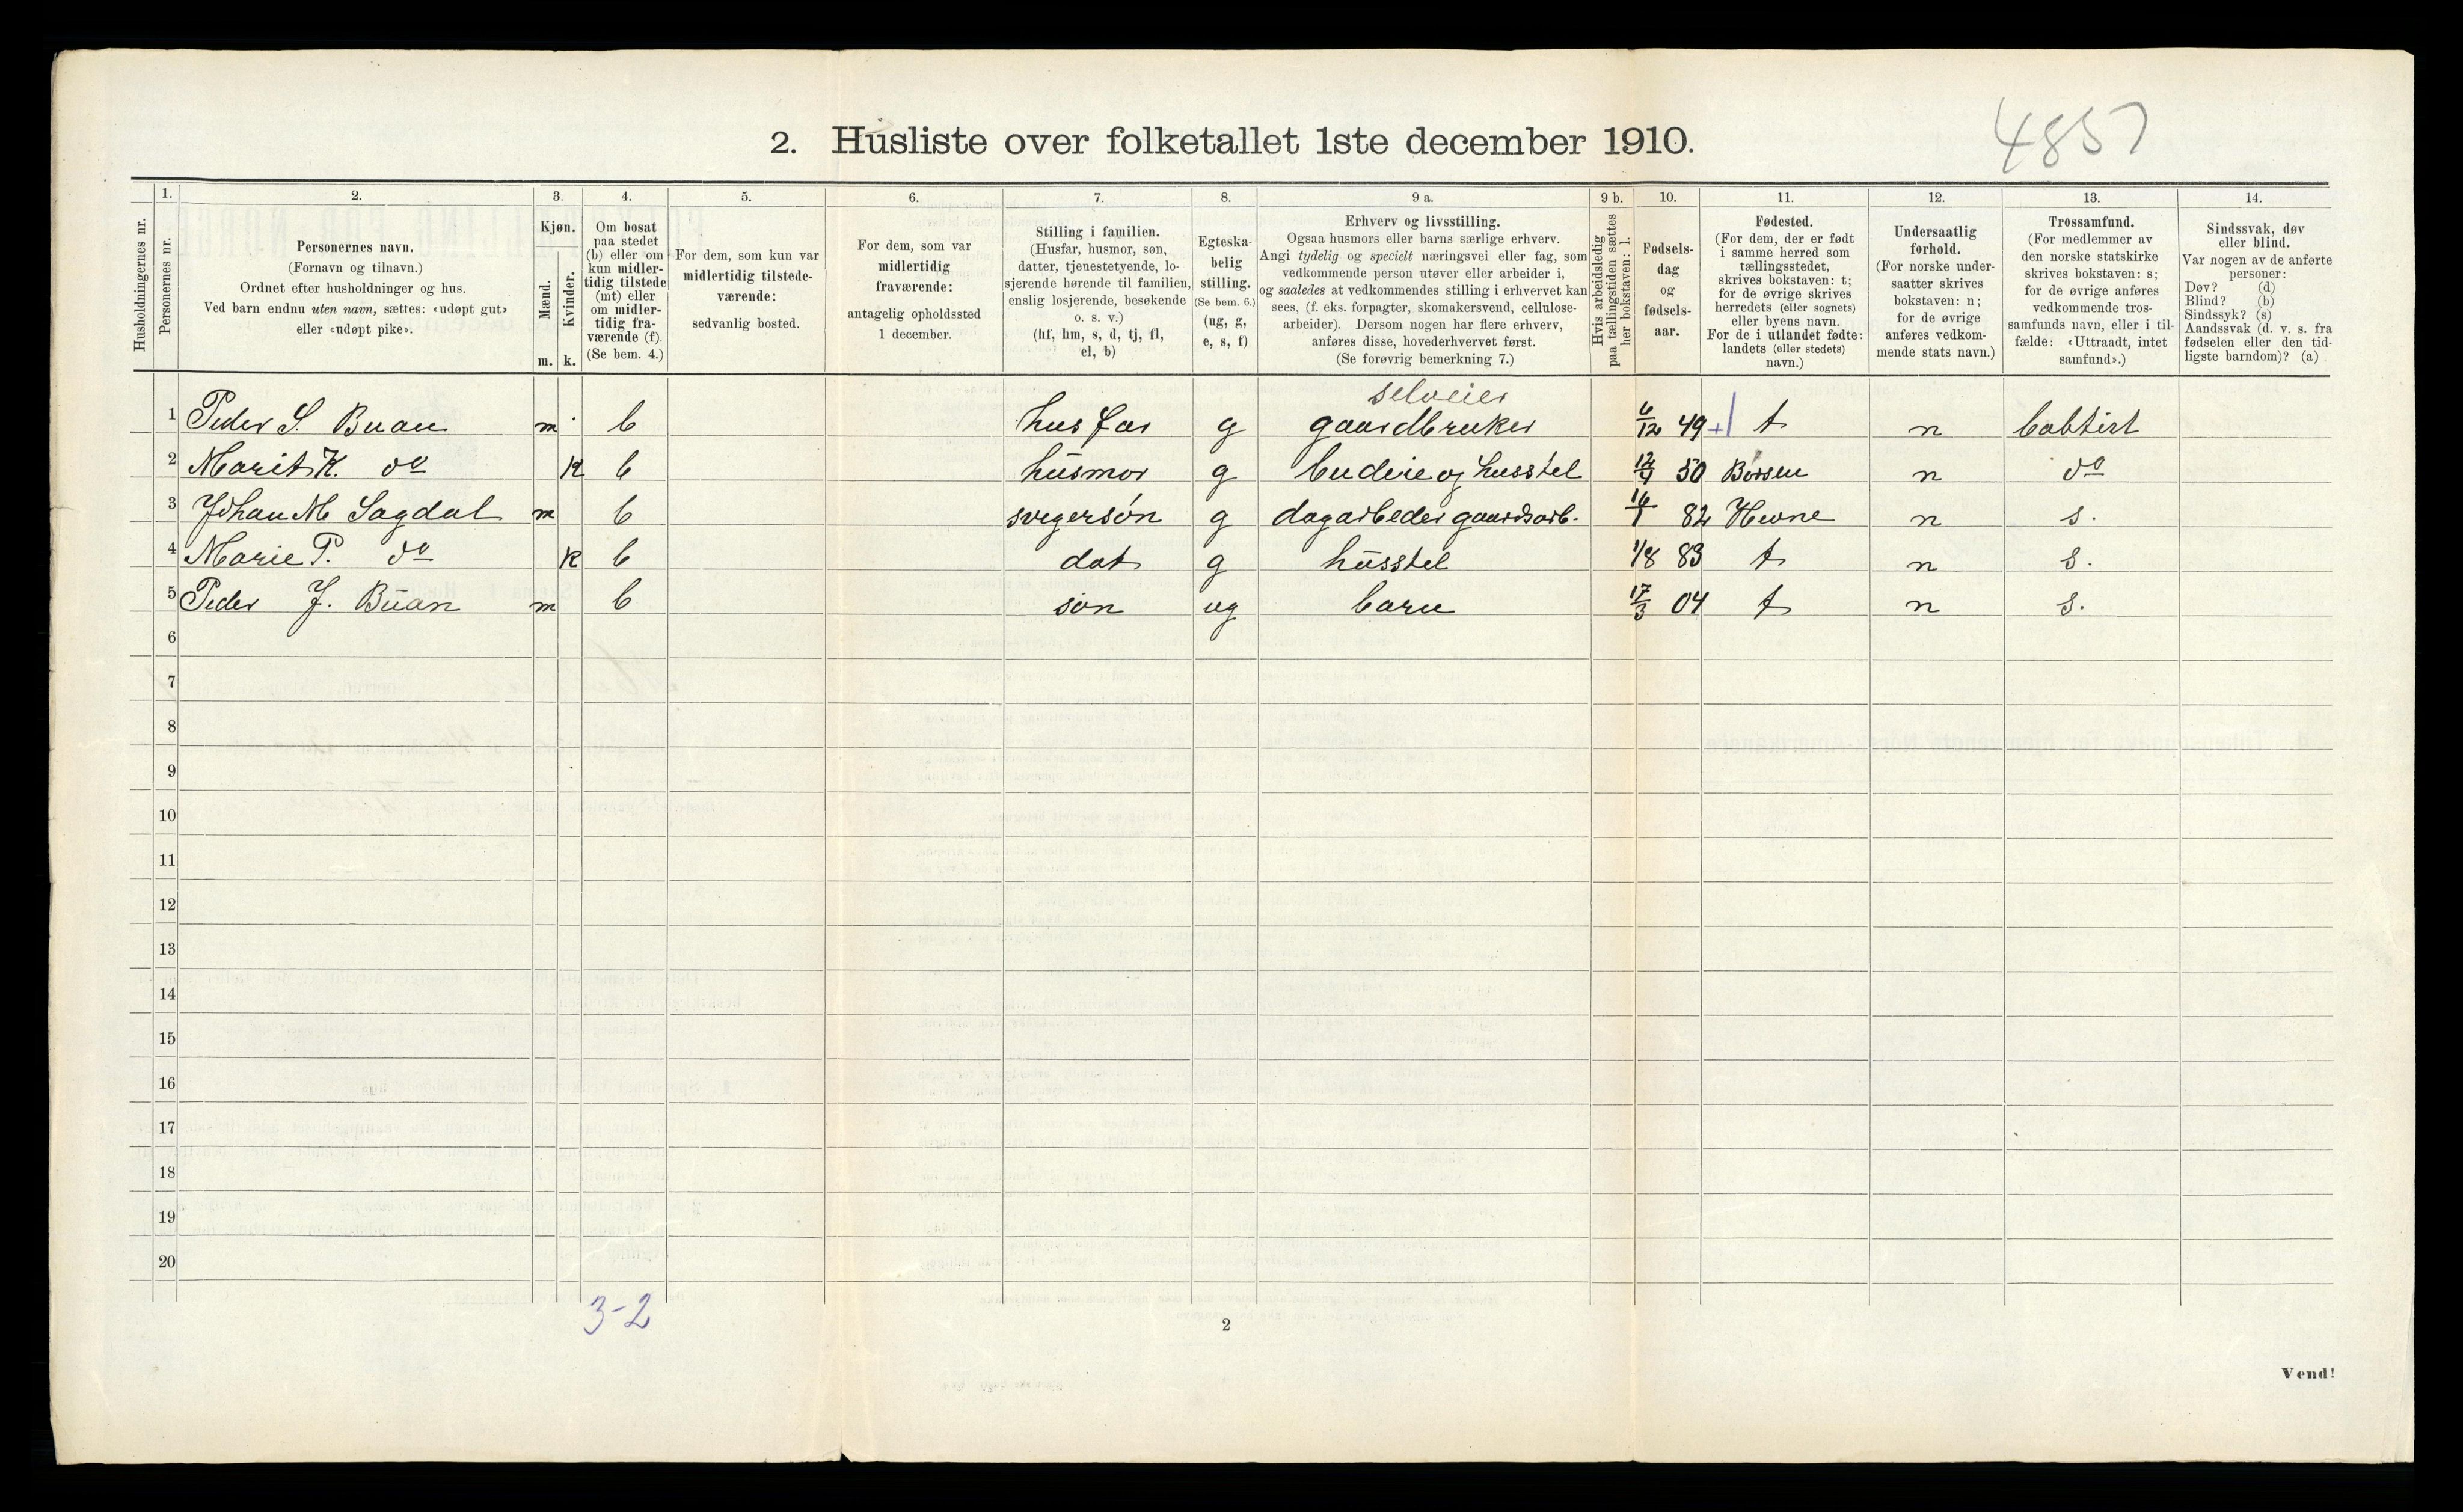 4857
2. Husliste over folketallet 1ste december 1910.
1. 2. 3. 4. 5. 6. 7. 8. 9 a. 9 b. 10. 11. 12. 13. 14.
Husholdningernes nr.
Personernes nr.
Personernes navn.
(Fornavn og tilnavn.)
Ordnet efter husholdninger og hus.
Ved barn endnu uten navn, sættes: «udøpt gut»
eller «udøpt pike».
Kjøn.
Mænd.
Kvinder.
m. k.
Om bosat
paa stedet
(b) eller om
kun midler-
tidig tilstede
(mt) eller
om midler-
tidig fra-
værende (f).
(Se bem. 4.)
For dem, som kun var
midlertidig tilstede-
værende:
sedvanlig bosted.
For dem, som var
midlertidig
fraværende:
antagelig opholdssted
1 december.
Stilling i familien.
(Husfar, husmor, søn,
datter, tjenestetyende, lo-
sjerende hørende til familien,
enslig losjerende, besøkende
o. s. v.)
(hf, hm, s, d, tj, fl,
el, b)
Egteska-
belig
stilling.
(Se bem. 6.)
(ug, g,
e, s, f)
Erhverv og livsstilling.
Ogsaa husmors eller barns særlige erhverv.
Angi tydelig og specielt næringsvei eller fag, som
vedkommende person utøver eller arbeider i,
og saaledes at vedkommendes stilling i erhvervet kan
sees, (f. eks. forpagter, skomakersvend, cellulose-
arbeider). Dersom nogen har flere erhverv,
anføres disse, hovederhvervet først.
(Se forøvrig bemerkning 7.)
Hvis arbeidsledig
paa tællingstiden sættes
her bokstaven: l.
Fødsels-
dag
og
fødsels-
aar.
Fødested.
(For dem, der er født
i samme herred som
tællingsstedet,
skrives bokstaven: t;
for de øvrige skrives
herredets (eller sognets)
eller byens navn.
For de i utlandet fødte:
landets (eller stedets)
navn.)
Undersaatlig
forhold.
(For norske under-
saatter skrives
bokstaven: n;
for de øvrige
anføres vedkom-
mende stats navn.)
Trossamfund.
(For medlemmer av
den norske statskirke
skrives bokstaven: s;
for de øvrige anføres
vedkommende tros-
samfunds navn, eller i til-
fælde: «Uttraadt, intet
samfund».)
Sindssvak, døv
eller blind.
Var nogen av de anførte
personer:
Døv? (d)
Blind? (b)
Sindssyk? (s)
Aandssvak (d. v. s. fra
fødselen eller den tid-
ligste barndom)? (a)
selveier
1 Peder S. Buan m b husfar g gaardbruker 6/12 49 t n babtist
2 Marit K. do k b husmor g budeie og husstel 12/9 50 Børsen n do
3 Johan M Sagdal m b svigersøn g dagarbeder gaardsarb. 16/1 82 Hevne n s.
4 Marie P. do k b dat g husstel 1/8 83 t n s.
5 Peder J. Buan m b søn ug barn 17/3 04 t n s.
6
7
8
9
10
11
12
13
14
15
16
17
18
19
20
3-2
2
Vend!